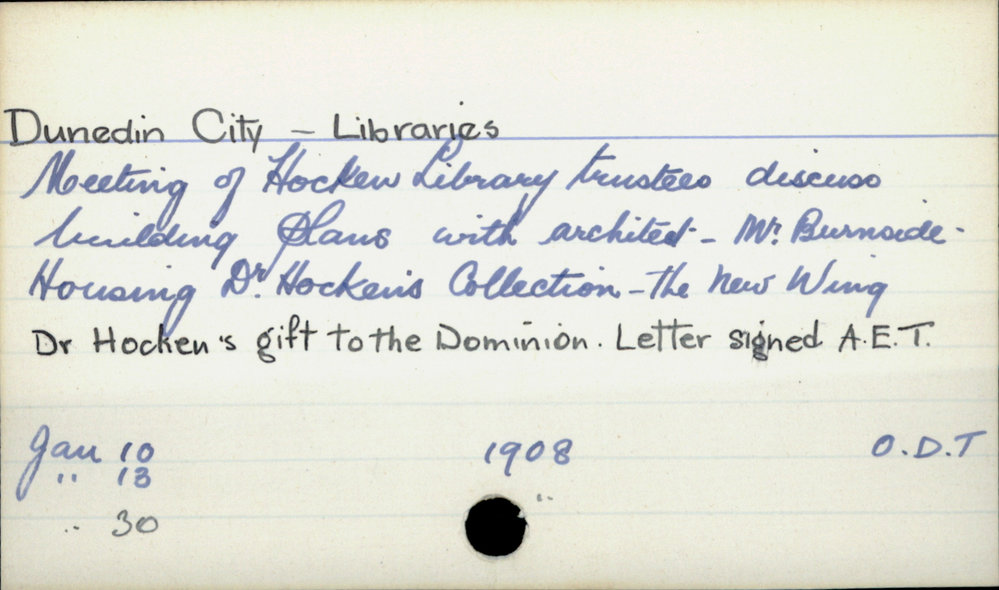 Dunedin City – Libraries
Meeting of Hocken Library trustees discuss
building plans with architect – Mr. Burnside.
Housing Dr. Hocken's Collection – The New Wing
Dr Hocken's gift to the Dominion. Letter signed A.E.T.
Jan 10 1908 O.D.T
" 13
" 30 "